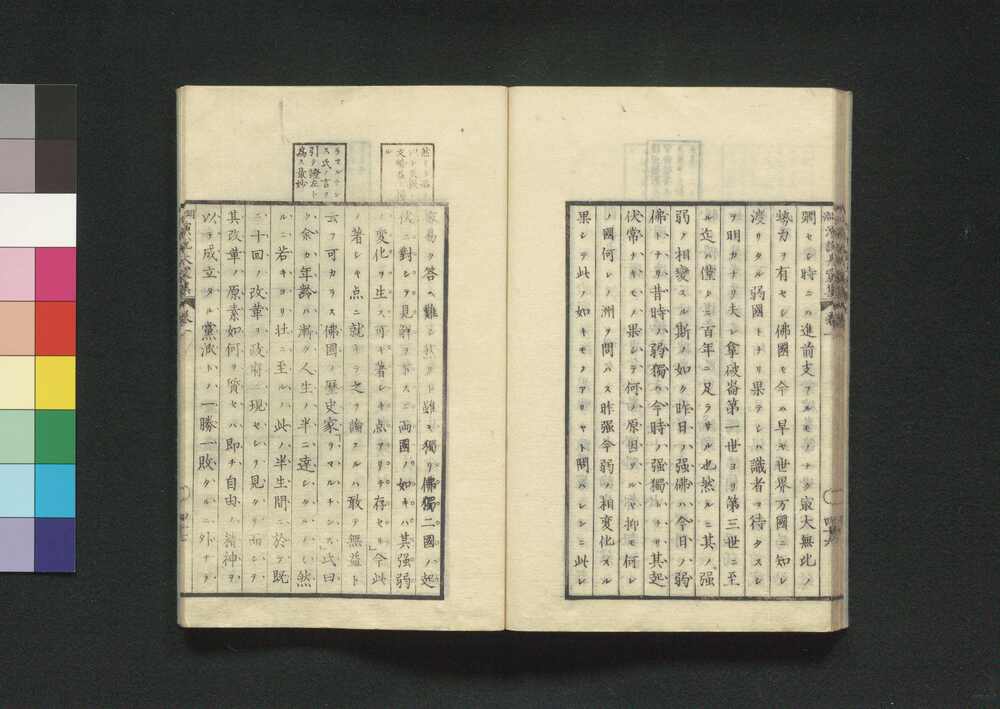 澗セシ時ニハ進前支フルモノナク最大無比ノ
勢力ヲ有セシ佛國モ今ハ早ヤ世界万國ニ知レ
渡リタル弱國トナリ果テシハ識者ヲ待タスシ
テ明カナリ夫レ拿破崙第一世ヨリ第三世ニ至
ル迄ハ僅カニ百年ニ足ラサル也然ルニ其ノ强
弱ノ相變スル斯ノ如ク昨日ノ强佛ハ今日ノ弱
佛トナリ昔時ノ弱獨ハ今時ノ强獨トナリ其起
伏常ナキモノ果シテ何ノ原因ゾヤ抑モ何レ
ノ國何レノ洲ヲ問ハス昨强今弱ノ相変化スル
果シテ此ノ如キモノアリヤト問ハレンニ此レ
四十六
容易ク答ヘ難シ然リト雖モ獨リ佛獨二國ノ起
伏ニ對シテ見解ヲ下スニ両國ノ如キハ其强弱
ノ変化ヲ生ス可キ著シキ点アリテ存セリ今此
ノ著シキ点ニ就キテ之ヲ論スルハ敢テ無益ト
云フ可カラス佛國ノ歴史家「ラマルチンス」氏曰
ク余カ年齡ハ漸ク人生ノ半ニ達シタルノミ然
ルニ若キヨリ壮ニ至ルハ此ノ半生間ニ於テ既
ニ十回ノ改革ヲ政府ニ現セシヲ見タリ而シテ
其改革ノ原素如何ヲ質セハ即チ自由ノ精神ヲ
以テ成立タル黨派トハ一勝一敗タルニ外ナラ
ラマルチン
ス氏ノ言ヲ
引テ證左ト
為ス最妙
卷一